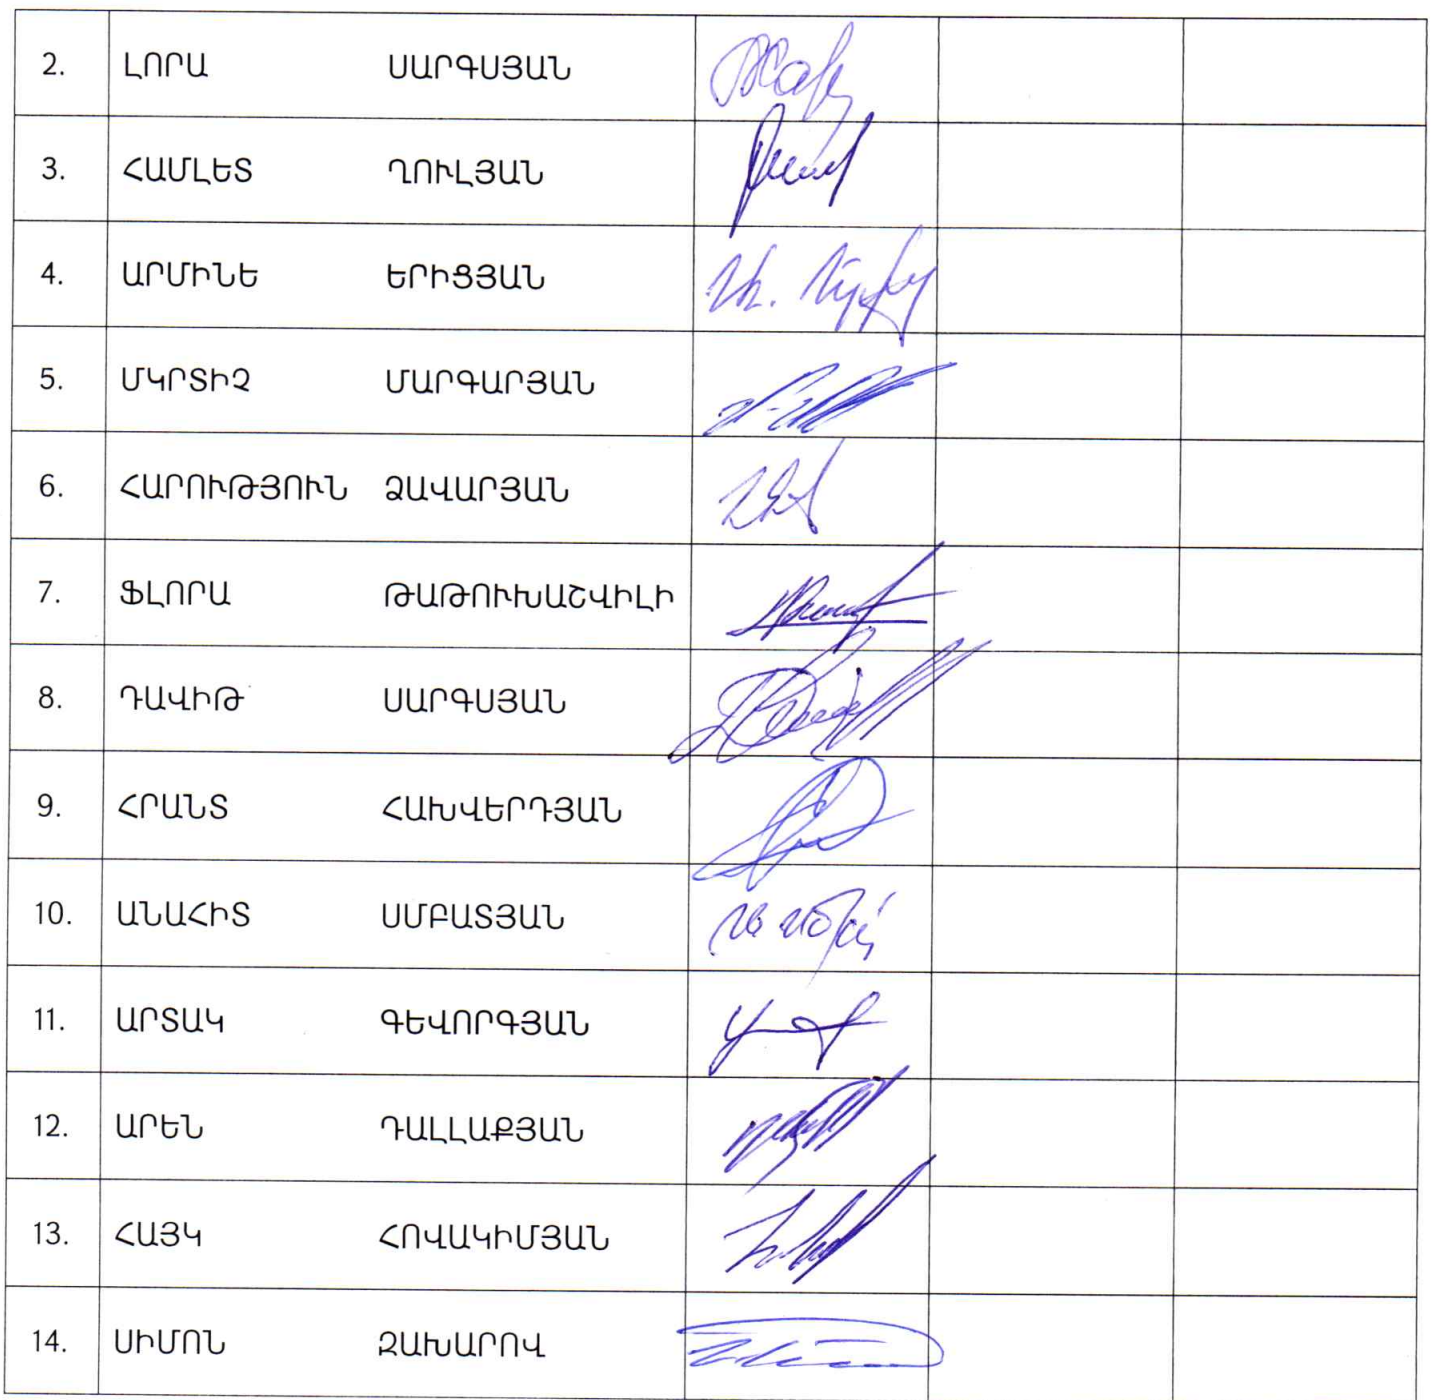 2. ԼՈՐԱ ՍԱՐԳՍՅԱՆ
3. ՀԱՄԼԵՏ ՂՈՒԼՅԱՆ
4. ԱՐՄԻՆԵ ԵՐԻՑՅԱՆ
5. ՄԿՐՏԻՉ ՄԱՐԳԱՐՅԱՆ
6. ՀԱՐՈՒԹՅՈՒՆ ՁԱՎԱՐՅԱՆ
7. ՖԼՈՐԱ ԹԱԹՈՒԽԱՇՎԻԼԻ
8. ԴԱՎԻԹ ՍԱՐԳՍՅԱՆ
9. ՀՐԱՆՏ ՀԱԽՎԵՐԴՅԱՆ
10. ԱՆԱՀԻՏ ՍՄԲԱՏՅԱՆ
11. ԱՐՏԱԿ ԳԵՎՈՐԳՅԱՆ
12. ԱՐԵՆ ԴԱԼԼԱՔՅԱՆ
13. ՀԱՅԿ ՀՈՎԱԿԻՄՅԱՆ
14. ՍԻՄՈՆ ԶԱԽԱՐՈՎ